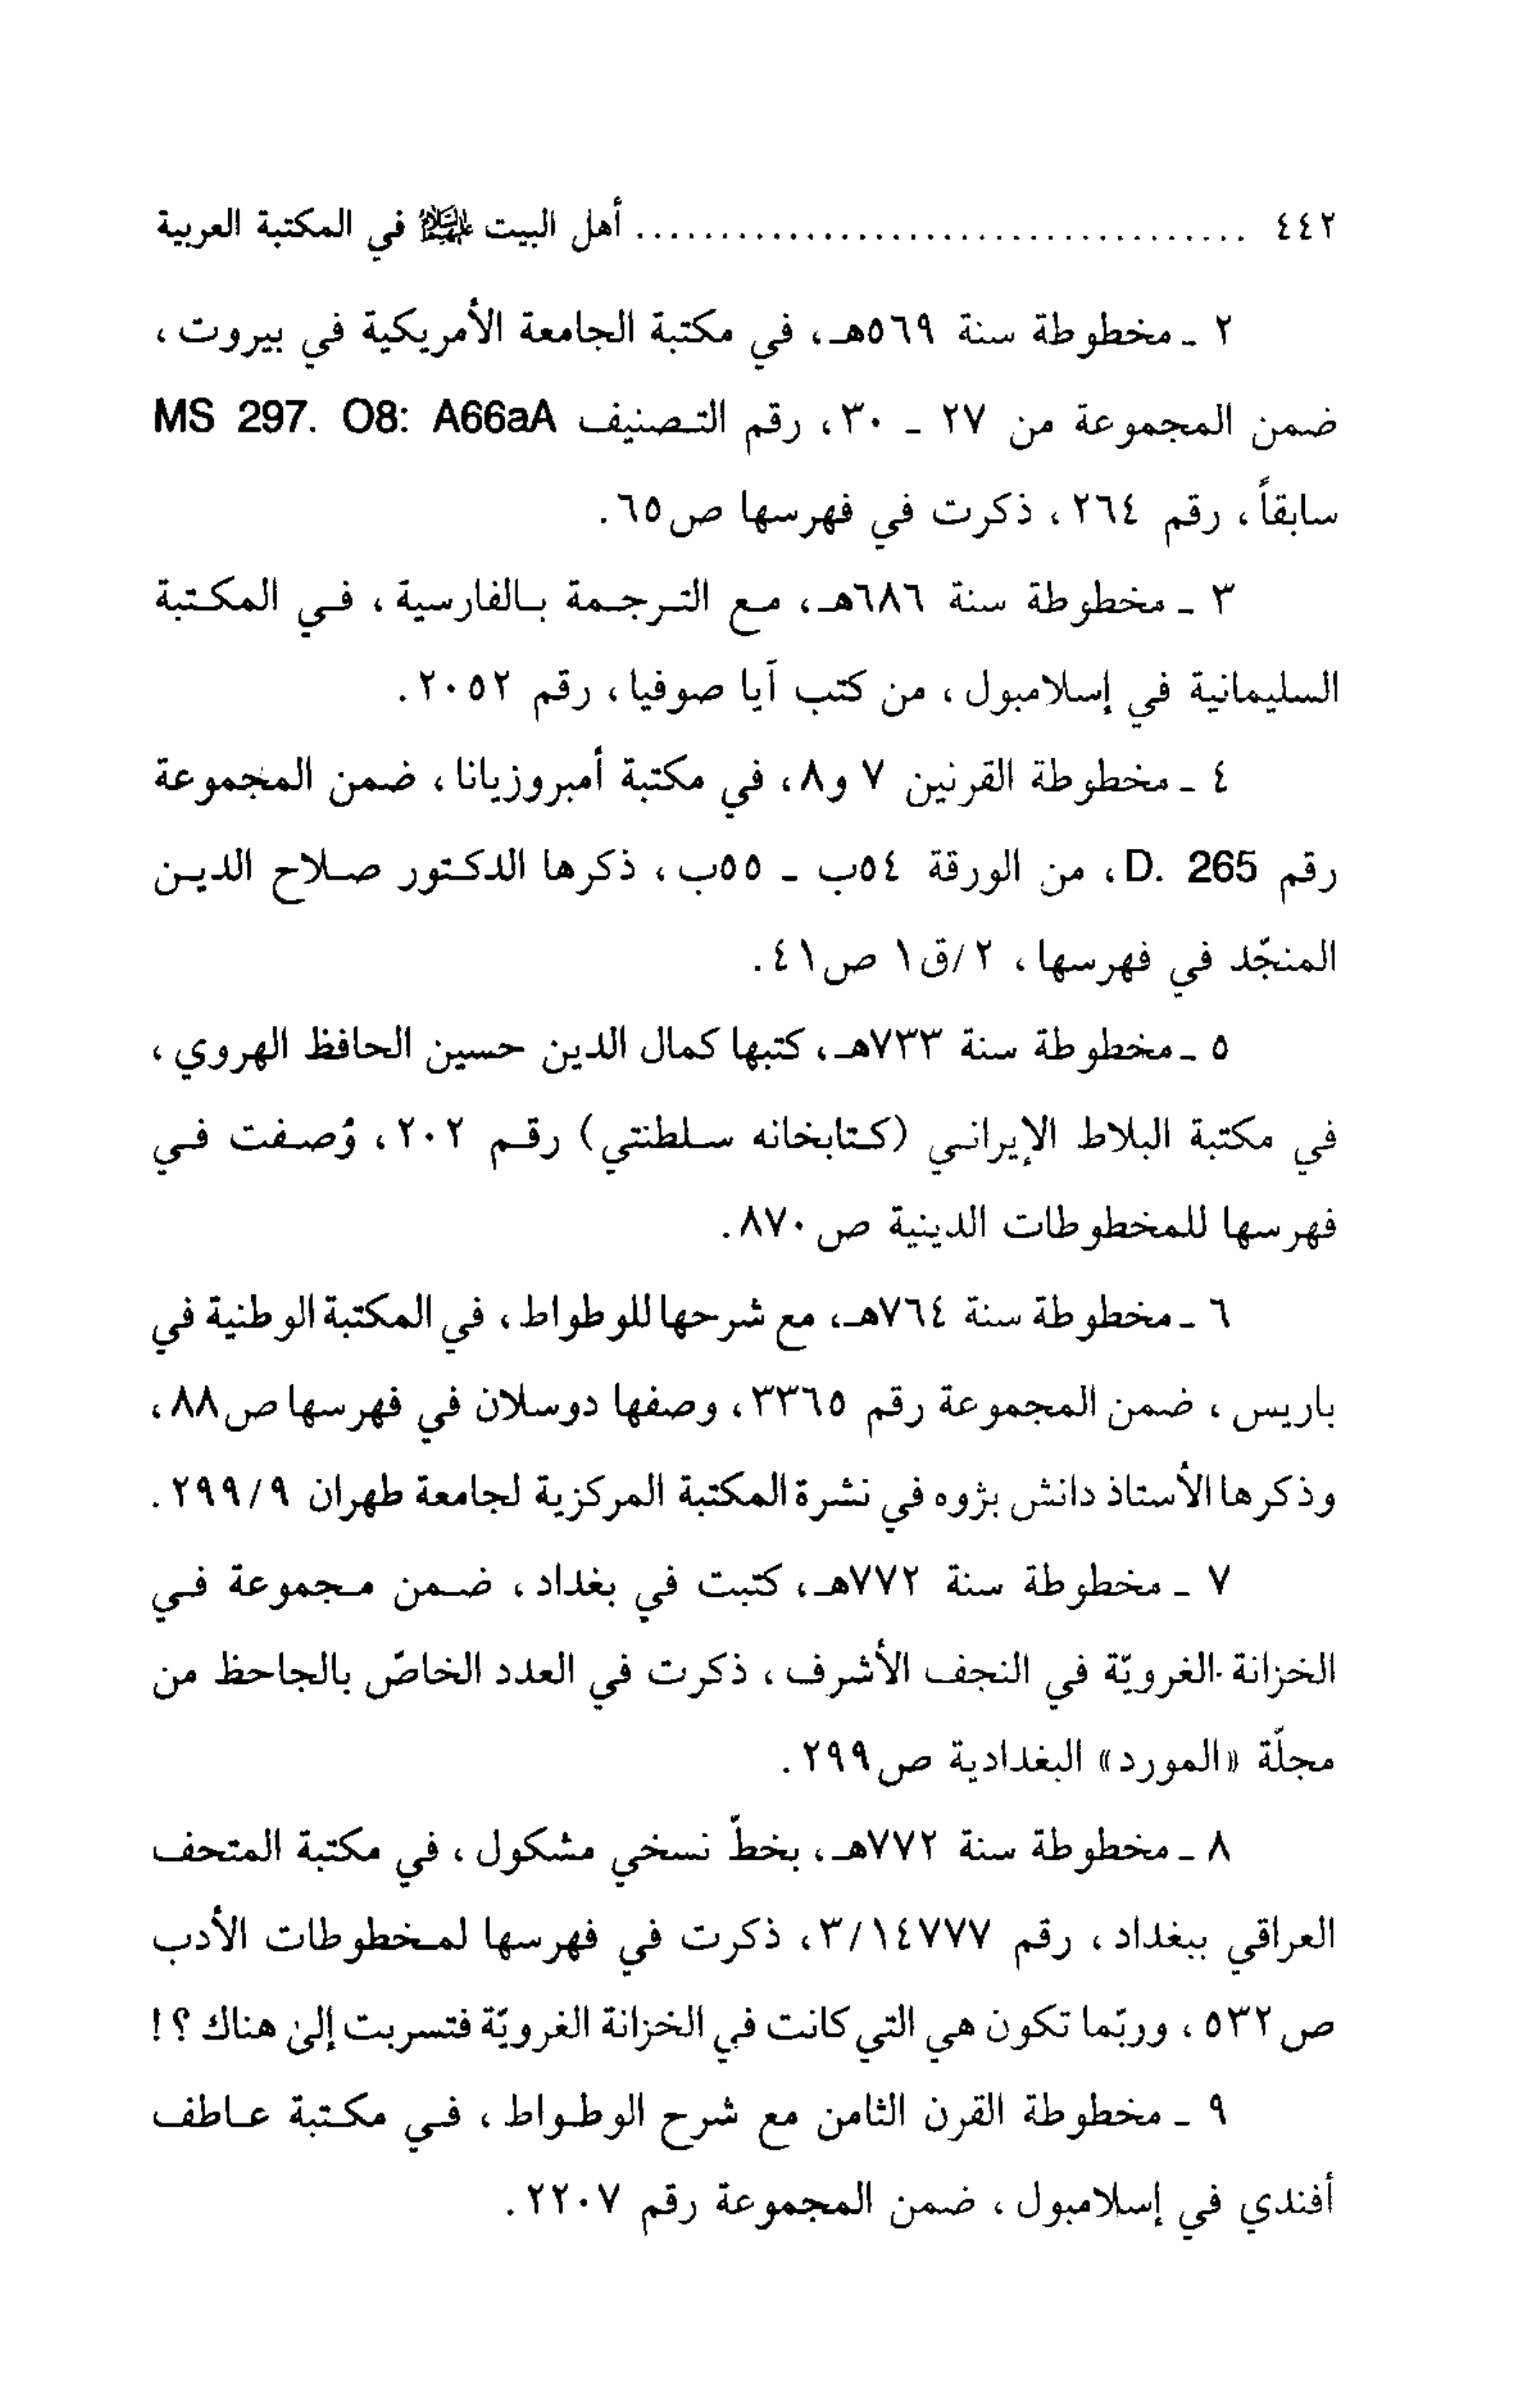 ٤٤٢ .................................... أهل البيت عليهم السلام في المكتبة العربية
٢ ـ مخطوطة سنة ٥٦٩هـ، في مكتبة الجامعة الأمريكية في بيروت،
ضمن المجموعة من ٢٧ ـ ٣٠، رقم التصنيف MS 297. O8: A66aA
سابقاً، رقم ٢٦٤، ذكرت في فهرسها ص٦٥.
٣ ـ مخطوطة سنة ٦٨٦هـ، مع الترجمة بالفارسية، في المكتبة
السليمانية في إسلامبول، من كتب آيا صوفيا، رقم ٢٠٥٢.
٤ ـ مخطوطة القرنين ٧ و٨، في مكتبة أمبروزيانا، ضمن المجموعة
رقم D. 265، من الورقة ٥٤ب ـ ٥٥ب، ذكرها الدكتور صلاح الدين
المنجّد في فهرسها، ٢/ق١ ص٤١.
٥ ـ مخطوطة سنة ٧٣٣هـ، كتبها كمال الدين حسين الحافظ الهروي،
في مكتبة البلاط الإيراني (كتابخانه سلطنتي) رقم ٢٠٢، وُصفت في
فهرسها للمخطوطات الدينية ص٨٧٠.
٦ ـ مخطوطة سنة ٧٦٤هـ، مع شرحها للوطواط، في المكتبة الوطنية في
باريس، ضمن المجموعة رقم ٣٣٦٥، وصفها دوسلان في فهرسها ص٨٨،
وذكرها الأستاذ دانش بژوه في نشرة المكتبة المركزية لجامعة طهران ٢٩٩/٩.
٧ ـ مخطوطة سنة ٧٧٢هـ، كتبت في بغداد، ضمن مجموعة في
الخزانة الغرويّة في النجف الأشرف، ذكرت في العدد الخاصّ بالجاحظ من
مجلّة «المورد» البغدادية ص٢٩٩.
٨ ـ مخطوطة سنة ٧٧٢هـ، بخطّ نسخي مشكول، في مكتبة المتحف
العراقي ببغداد، رقم ٣/١٤٧٧٧، ذكرت في فهرسها لمخطوطات الأدب
ص٥٣٢، وربّما تكون هي التي كانت في الخزانة الغرويّة فتسربت إلى هناك؟!
٩ ـ مخطوطة القرن الثامن مع شرح الوطواط، في مكتبة عاطف
أفندي في إسلامبول، ضمن المجموعة رقم ٢٢٠٧.